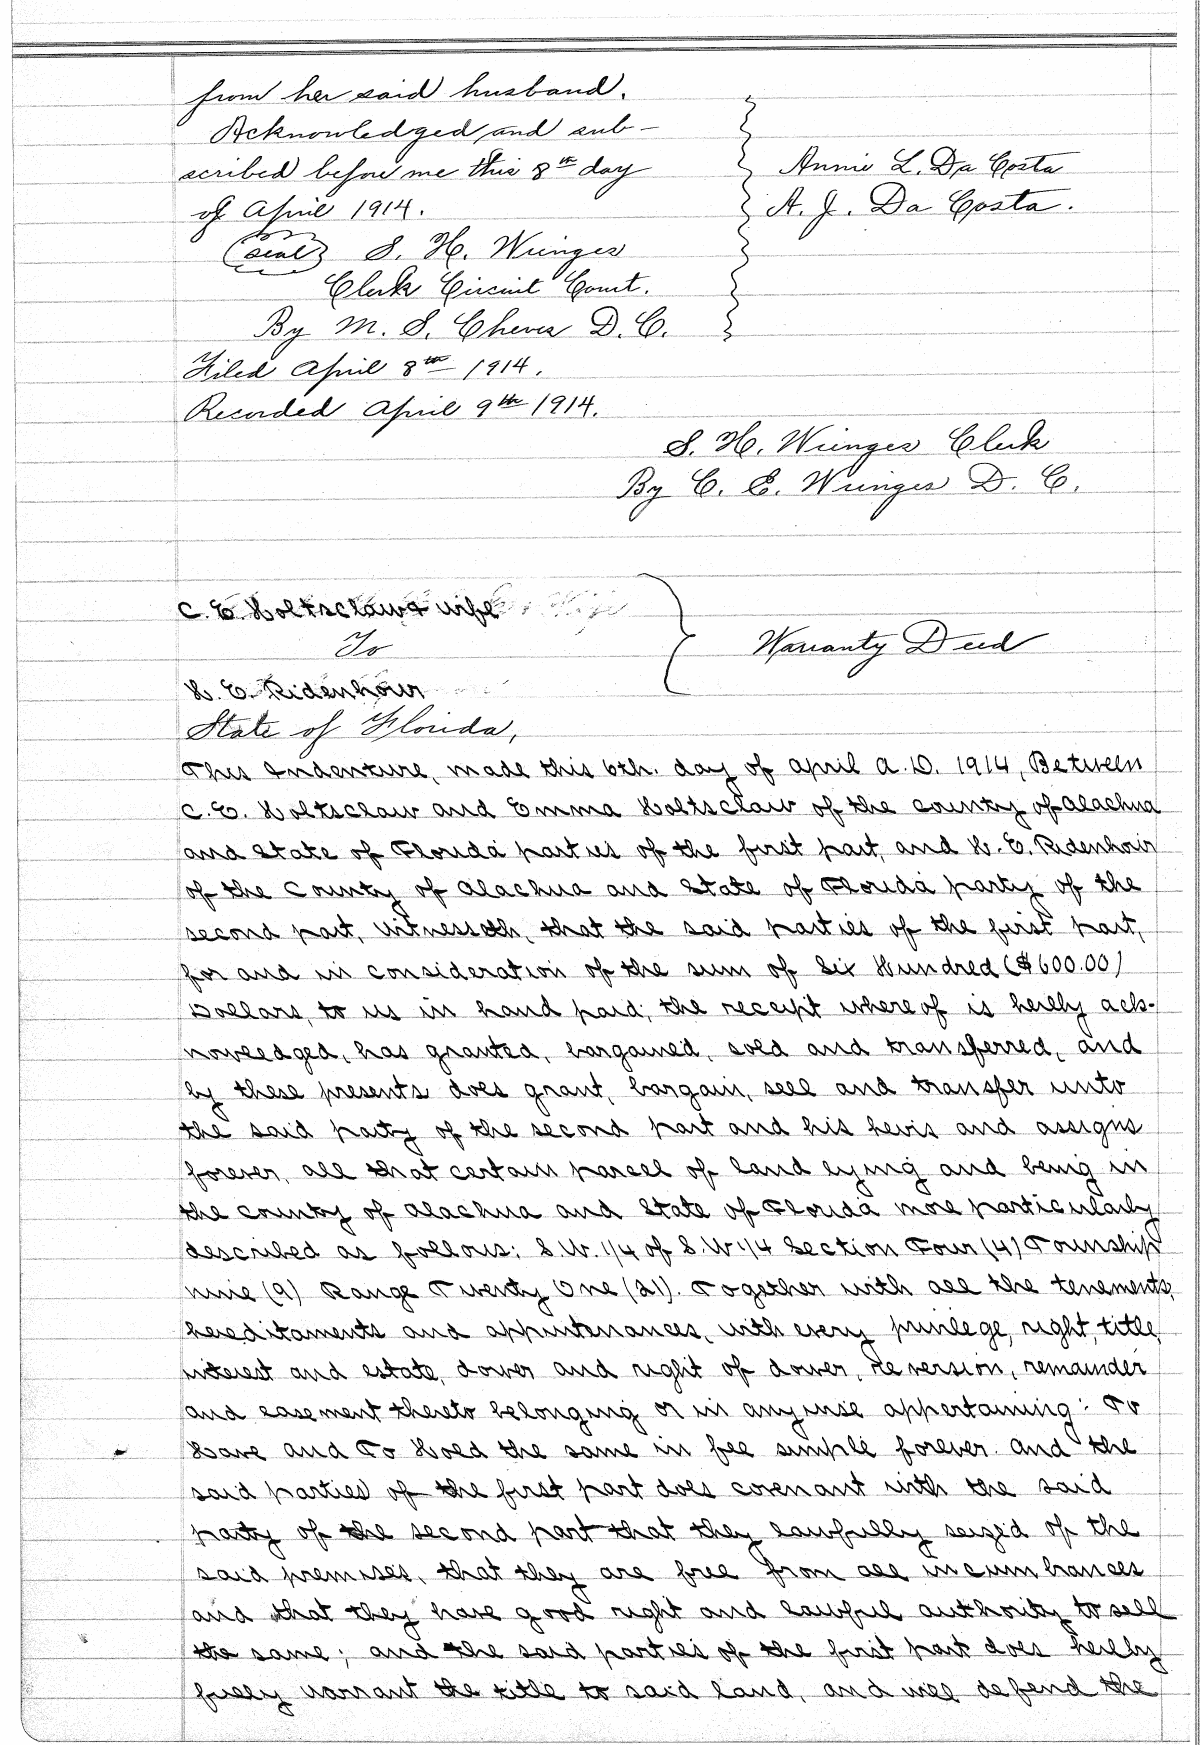 from her said husband.
Acknowledged and sub-
scribed before me this 8th day
of April 1914.
Annie L. Da Costa
A. J. Da Costa.
(seal) S. H. Wienges
Clerk Circuit Court.
By M. S. Cheves D. C.
Filed April 8th 1914.
Recorded April 9th 1914.
S. H. Wienges Clerk
By C. E. Wienges D. C.
C. E. Holtsclaw & wife
To
Warranty Deed
H. E. Ridenhour
State of Florida,
This Indenture, made this 6th. day of April A. D. 1914, Between
C. E. Holtsclaw and Emma Holtsclaw of the county of Alachua
and State of Florida parties of the first part, and H. E. Ridenhour
of the County of Alachua and State of Florida party of the
second part, witnesseth, that the said parties of the first part,
for and in consideration of the sum of Six Hundred ($600.00)
Dollars, to us in hand paid; the receipt whereof is hereby ack-
nowledged, has granted, bargained, sold and transferred, and
by these presents does grant, bargain, sell and transfer unto
the said party of the second part and his heirs and assigns
forever, all that certain parcel of land lying and being in
the county of Alachua and State of Florida more particularly
described as follows: S.W. 1/4 of S.W. 1/4 Section Four (4) Township
nine (9) Range Twenty One (21). Together with all the tenements,
hereditaments and appurtenances, with every privilege, right, title,
interest and estate, dower and right of dower, reversion, remainder
and easement thereto belonging or in anywise appertaining: To
Have and To Hold the same in fee simple forever. And the
said parties of the first part does covenant with the said
party of the second part that they lawfully seized of the
said premises, that they are free from all incumbrances
and that they have good right and lawful authority to sell
the same; and the said parties of the first part does hereby
fully warrant the title to said land, and will defend the